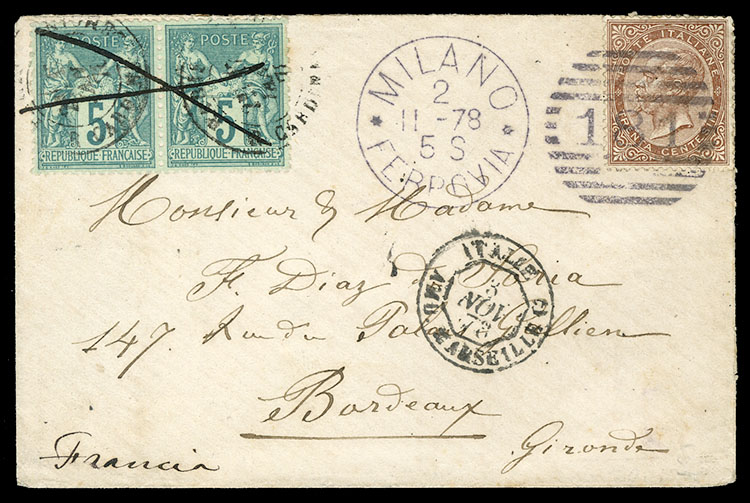 POSTE
POSTE
5
5
REPUBLIQUE FRANCAISE
REPUBLIQUE FRANCAISE
MILANO
2
11-78
5 S
FERROVIA
POSTE ITALIANE
TRENTA CENTESIMI
Monsieur & Madame
F. Diaz de Soria
147 Rue du Palais Gallien
Bordeaux
Gironde
Francia
ITALIE
3
NOV
78
MARSEILLE